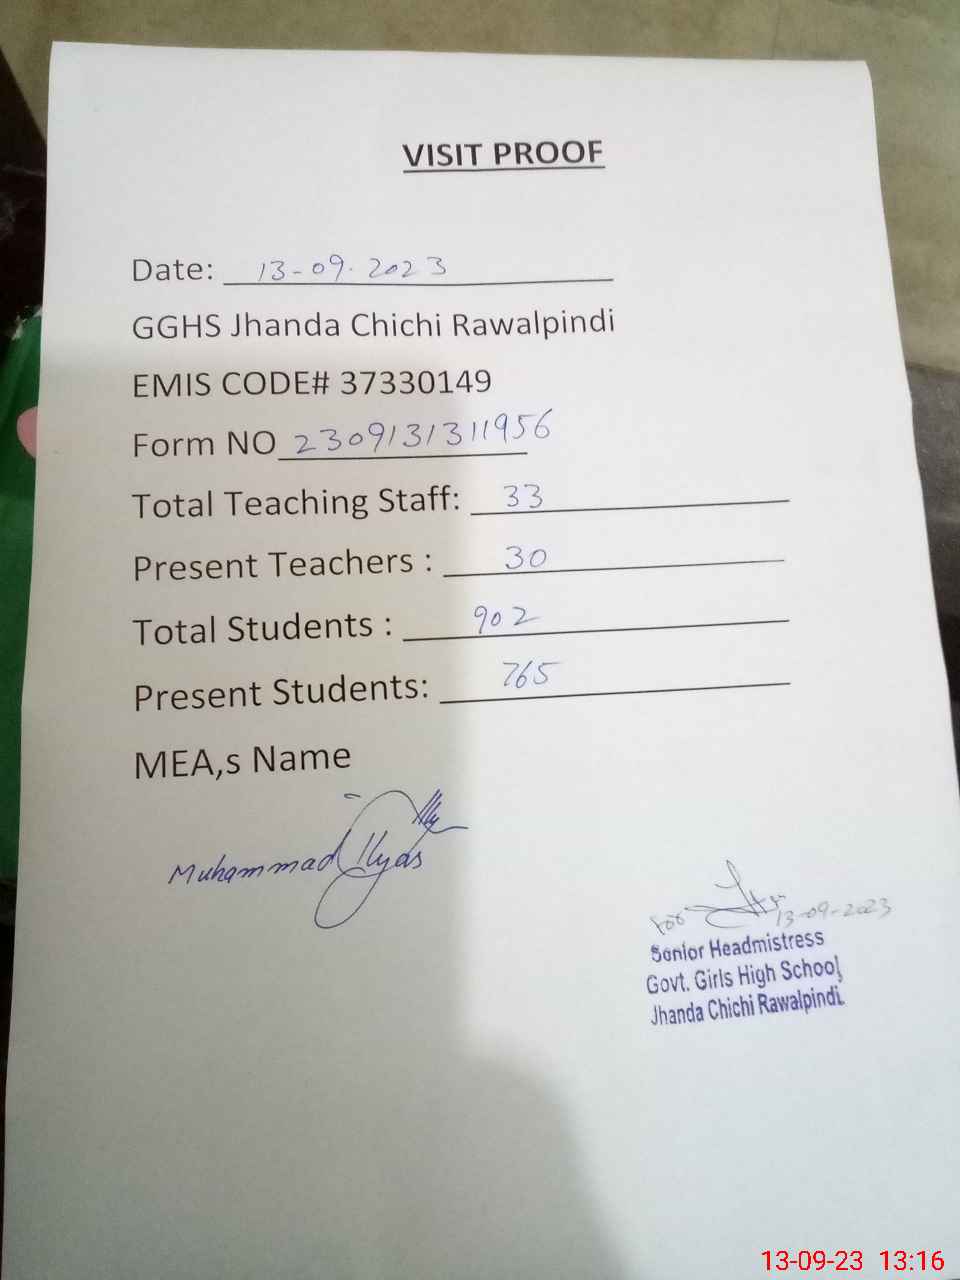 VISIT PROOF
Date: 13-09-2023
GGHS Jhanda Chichi Rawalpindi
EMIS CODE# 37330149
Form NO 230913131 1956
Total Teaching Staff: 33
Present Teachers : 30
Total Students : 902
Present Students: 765
MEA,s Name
Muhammad Ilyas
For
13-09-2023
Senior Headmistress
Govt. Girls High School,
Jhanda Chichi Rawalpindi.
13-09-23 13:16